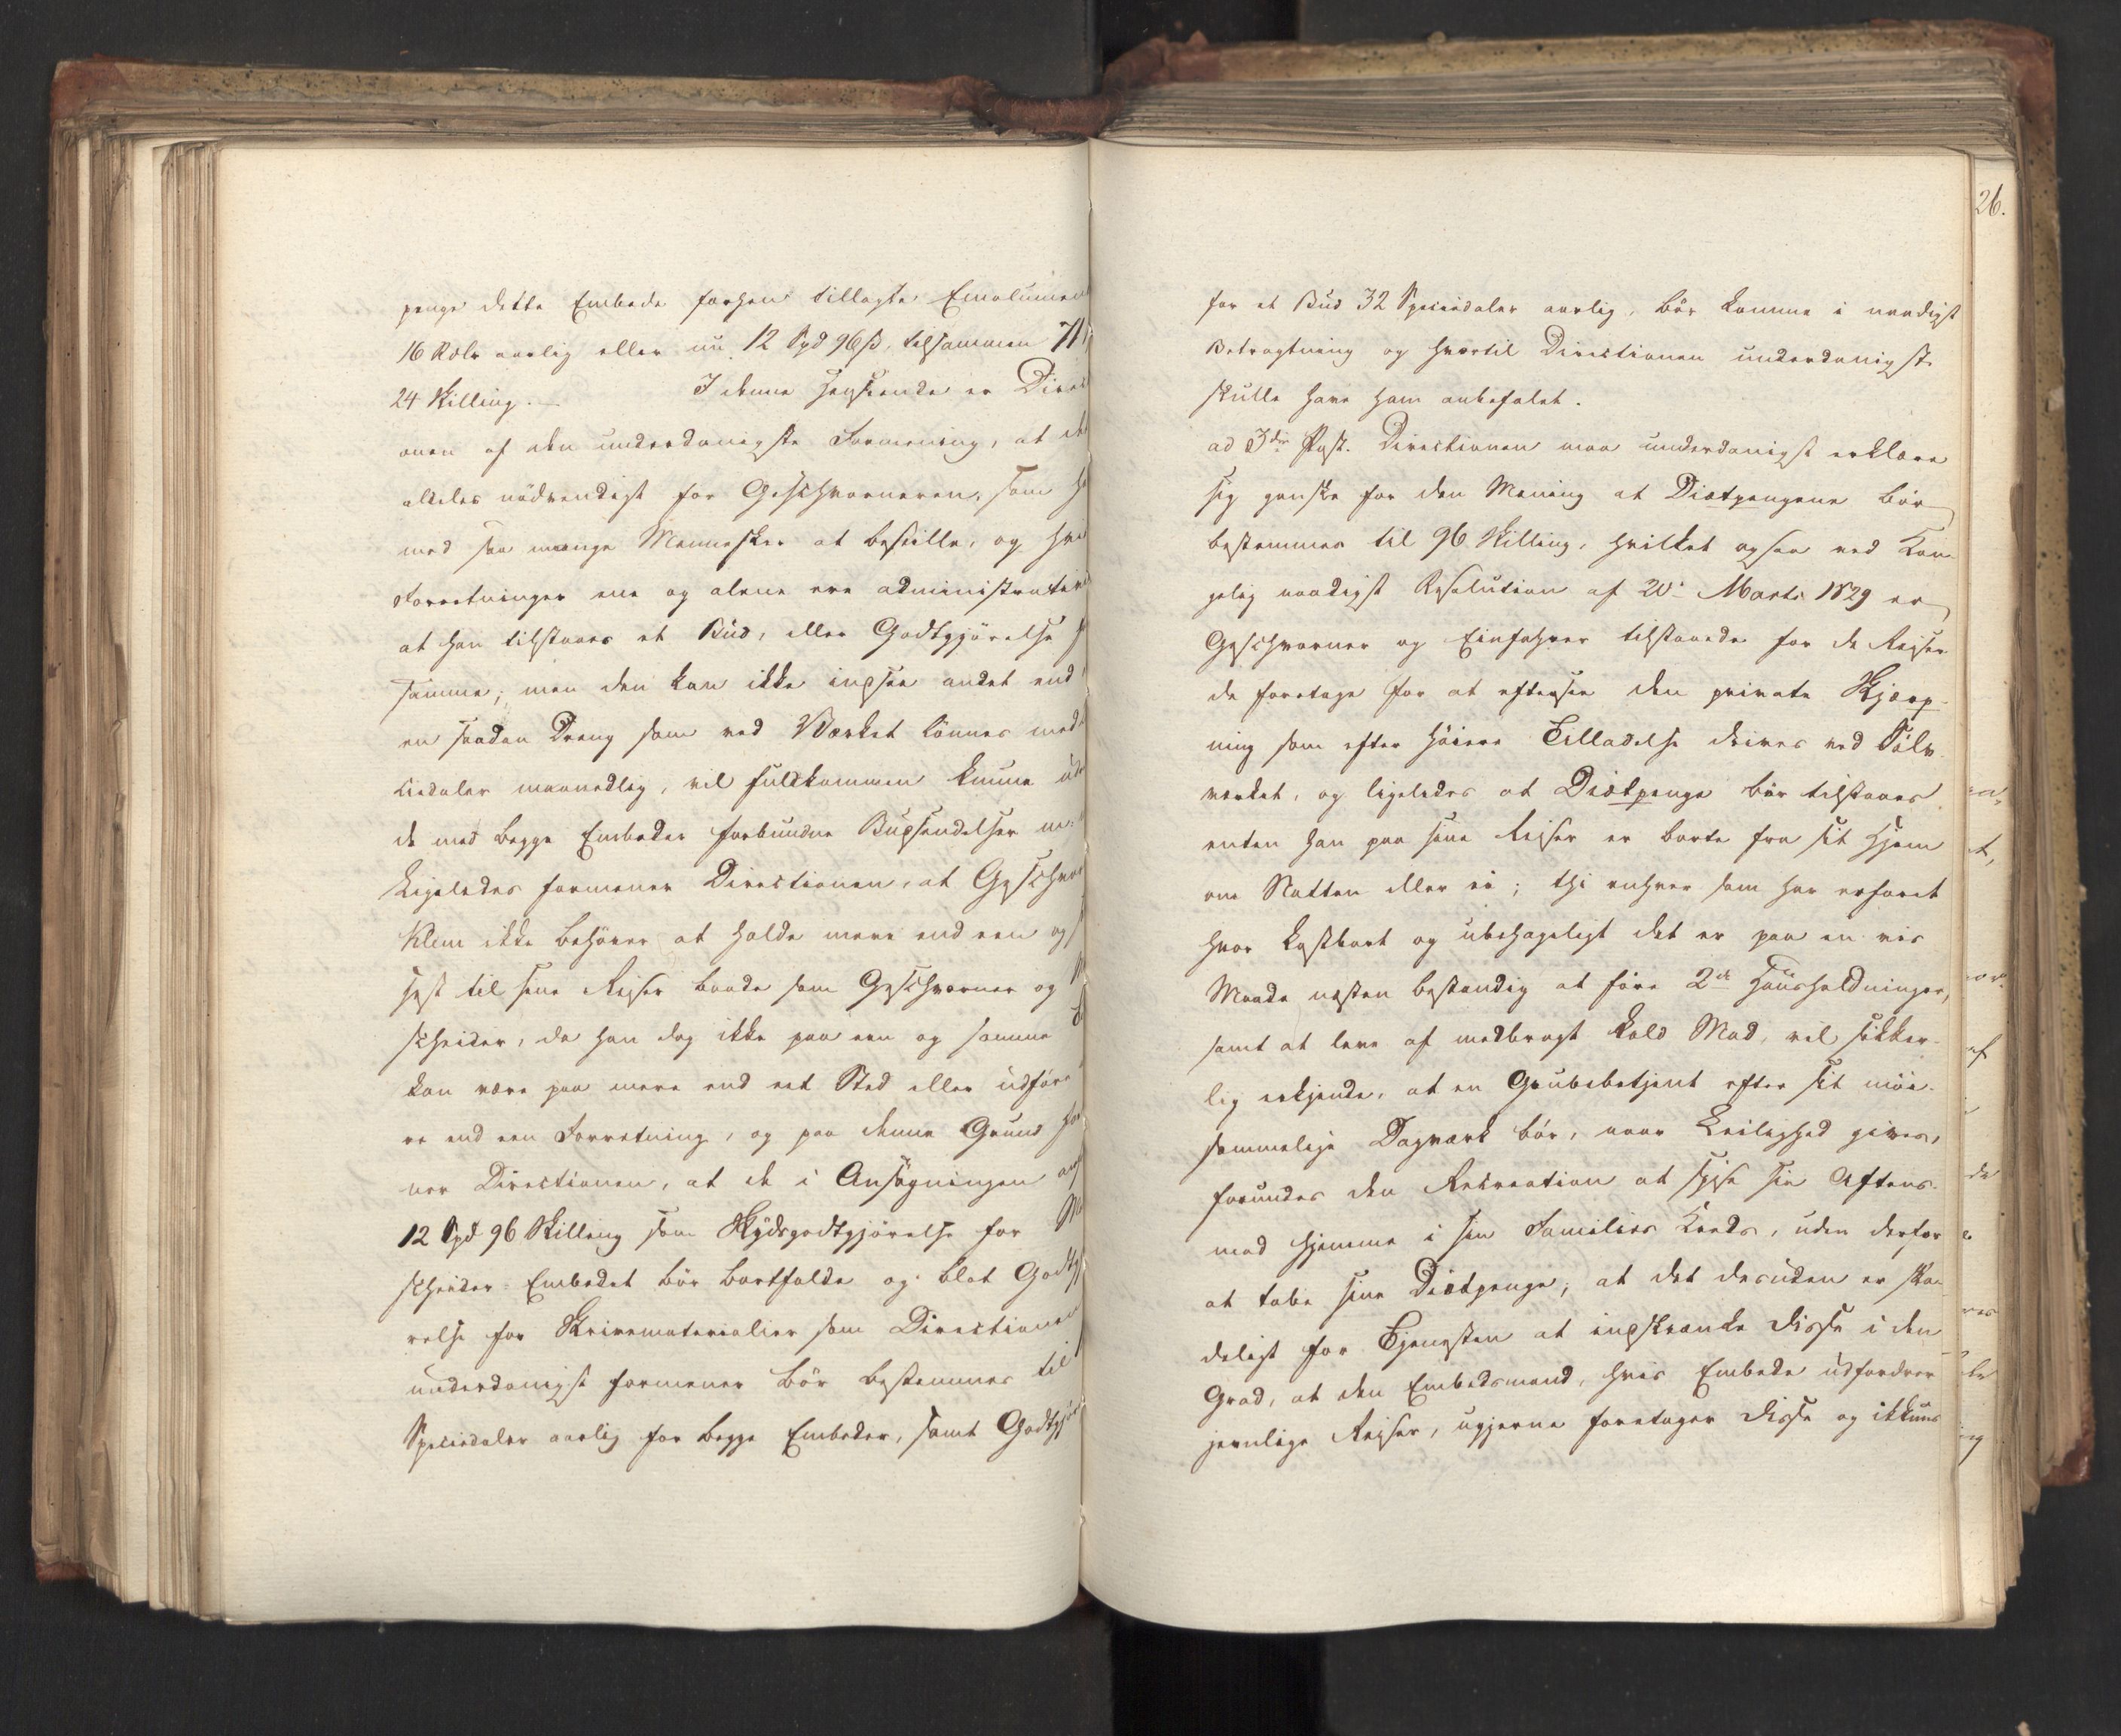 penge dette Embede forhen tillagte Emolumen
16 Rdlr aarlig eller nu 12 Spd 96 ß, tilsammen 71
24 Skilling. — I denne Henseende er Direc
onen af den underdanigste Formening, at det
aldeles nödvendigt for Geschworneren, som ha
med saa mange Mennesker at bestille, og hvis
Forretninger ene og alene ere administrative
at han tilstaaes et Bud, eller Godtgjörelse f
samme, men den kan ikke indsee andet end
en saadan Dreng som ved Værket lönnes med
ciedaler maanedlig, vil fuldkommen kunne ud
de med begge Embeder forbundne Budsendelser
Ligeledes formener Directionen, at Geschwor
Klem ikke behöver at holde mere end een og
Hest til sine Reiser baade som Geschworner og M
scheider, da han dog ikke paa een og samme T
kan være paa mere end eet Sted eller udföre
re end een Forretning, og paa denne Grund for
ner Directionen, at de i Ansögningen
12 Spd 96 Skilling som Skydsgodtgjörelse for Ma
scheider-Embedet bör bortfalde og blot Godtgj
relse for Skrivematerialier som Directionen
underdanigst formener bör bestemmes til
Speciedaler aarlig for begge Embeder, samt Godtgjör
26.
for et Bud 32 Speciedaler aarlig, bör komme i naadigst
Betragtning og hvortil Directionen underdanigst
skulle have ham anbefalet.
ad 3die Post. Directionen maa underdanigst erklære
sig ganske for den Mening at Diætpengene bör
bestemmes til 96 Skilling, hvilket ogsaa ved Kon
gelig naadigst Resolution af 20de Marts 1829 er
Geschworner og Einfahrer tilstaaede for de Reiser
de foretage for at eftersee den private Skjærp-
ning som efter höiere Tilladelse drives ved Sölv
verket, og ligeledes at Diætpenge bör tilstaaes
enten han paa sine Reiser er borte fra sit Hjem
om Natten eller ei; thi enhver som har erfaret
hvor kostbart og ubehageligt det er paa en vis
Maade næsten bestandig at före 2de Huusholdninger,
samt at leve af medbragt kold Mad, vil sikker-
lig erkjende, at en Grubebetjent efter sit möi-
sommelige Dagværk bör, naar Leilighed gives,
forundes den Recreation at spise sin Aftens-
mad hjemme i sin Families Kreds, uden derfor
at tabe sine Diætpenge; at det desuden er ska-
deligt for Tjenesten at indskrænke disse i den
Grad, at den Embedsmand, hvis Embede udfordrer
jevnlige Reiser, ugjerne foretager disse og ikkuns